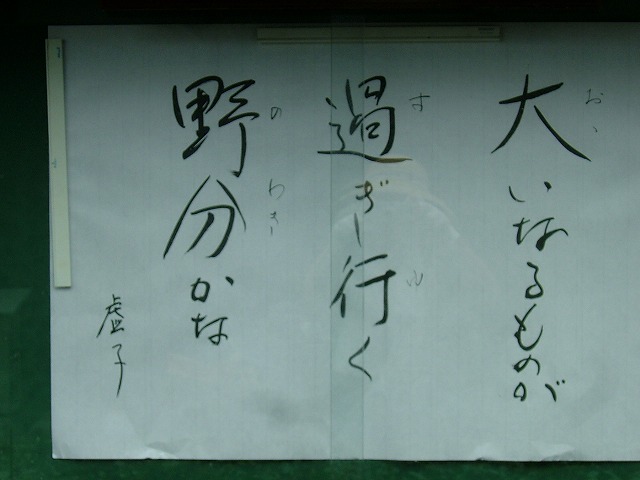 大いなるものが
おゝ
過ぎ行く
す
ゆ
野分かな
の
わき
虚子